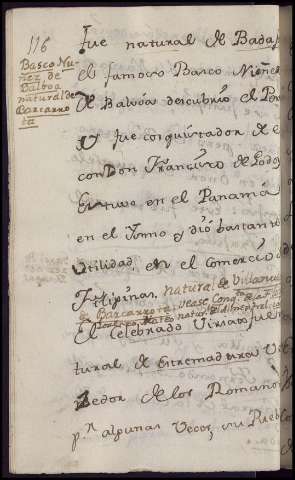 116
Basco Nu-
ñez de
Balboa
natural de
Barcarro
ta
Fue natural de Badaj
el famoso Basco Nuñe
de Balvoa descubrio el
y fue conquistador de
con Don Francisco de
Estuvo en el Panamá
en el Tomo y dió bastante
utilidad, en el comercio
Filipinas, natural de
de Barcarrota vease
El celebrado Viriato fue
tural, de Extremadura
zedor de los Romanos
p.r algunas Veces, su Pueblo